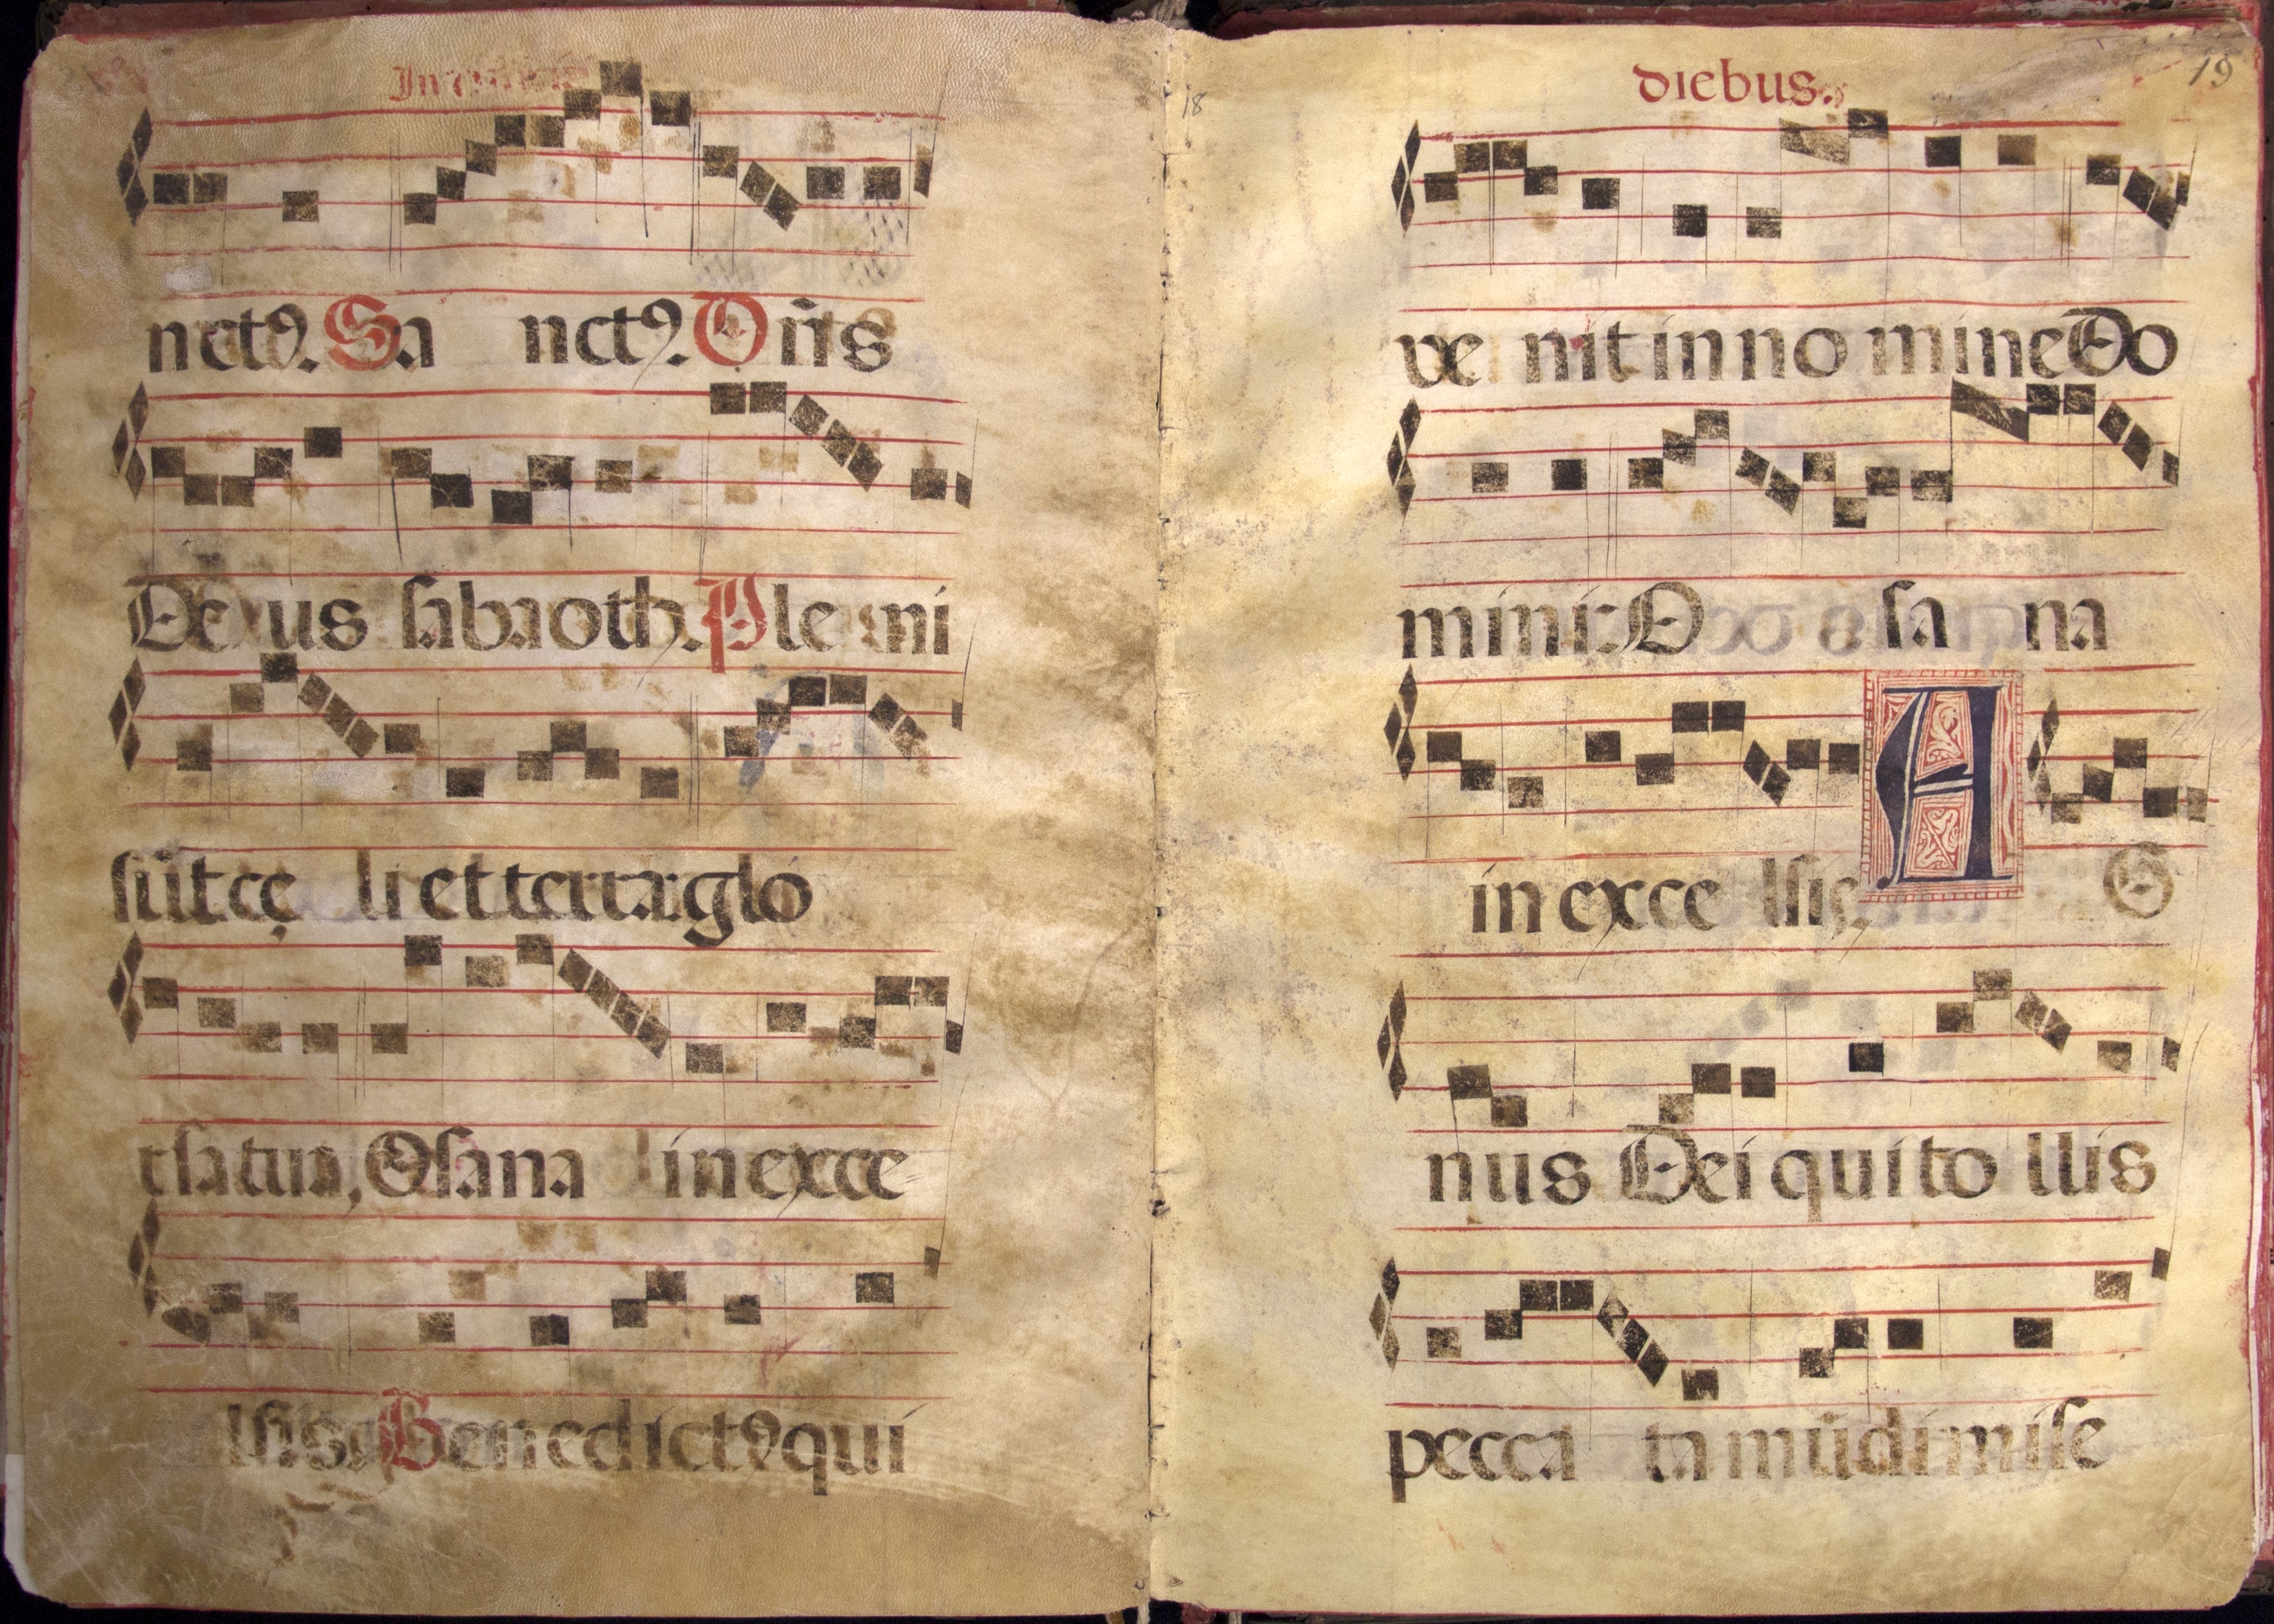 In
nctꝰ. Sa nctꝰ. Dn̄s
De us sabaoth. Ple ni
sūt cę li et terra: glo
r ia tua, Osana in exce
lsis. Benedictꝰ qui
18
diebus.
19
ve nit in no mine Do
mini: O sa na
in exce lsis. A G
nus Dei qui to llis
pecca ta mūdi mise